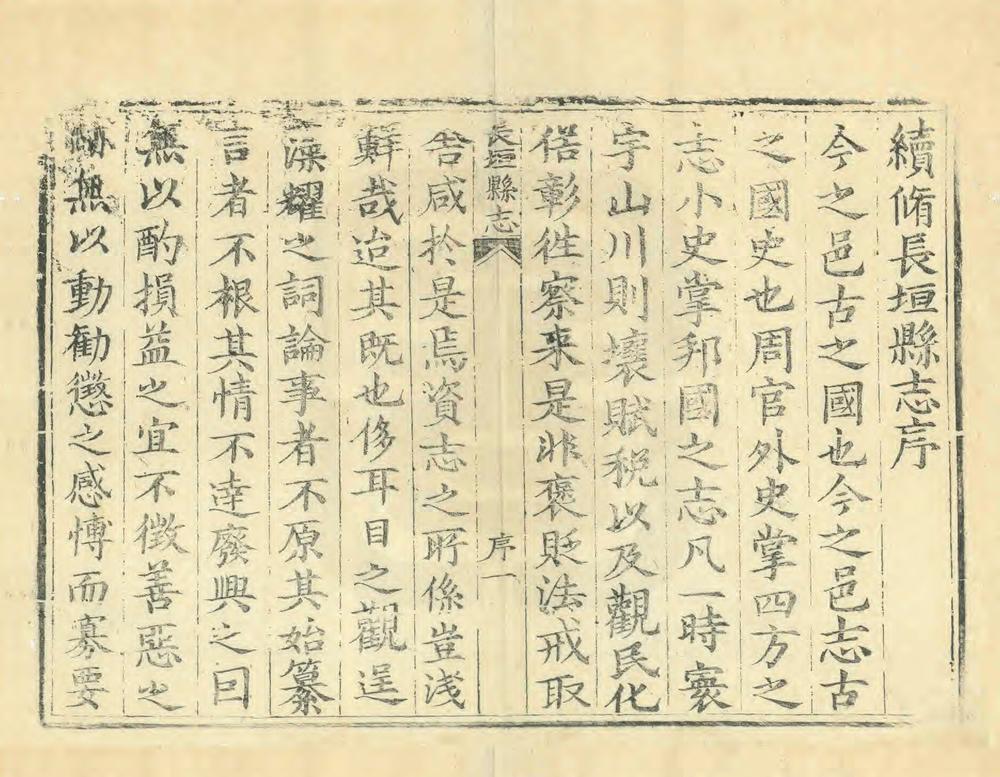 續脩長垣縣志序
今之邑古之國也今之邑志古
之國史也周官外史掌四方之
志小史掌邦國之志凡一時寰
宇山川則壤賦稅以及觀民化
俗彰徃察来是非褒貶法戒取
舍咸扵是焉資志之所係豈淺
鮮哉迨其既也侈耳目之觀逞
藻耀之詞論事者不原其始纂
言者不根其情不逹廢興之囙
無以酌損益之宜不徴善惡之
無以動勸懲之感愽而寡要
長垣縣志
序一